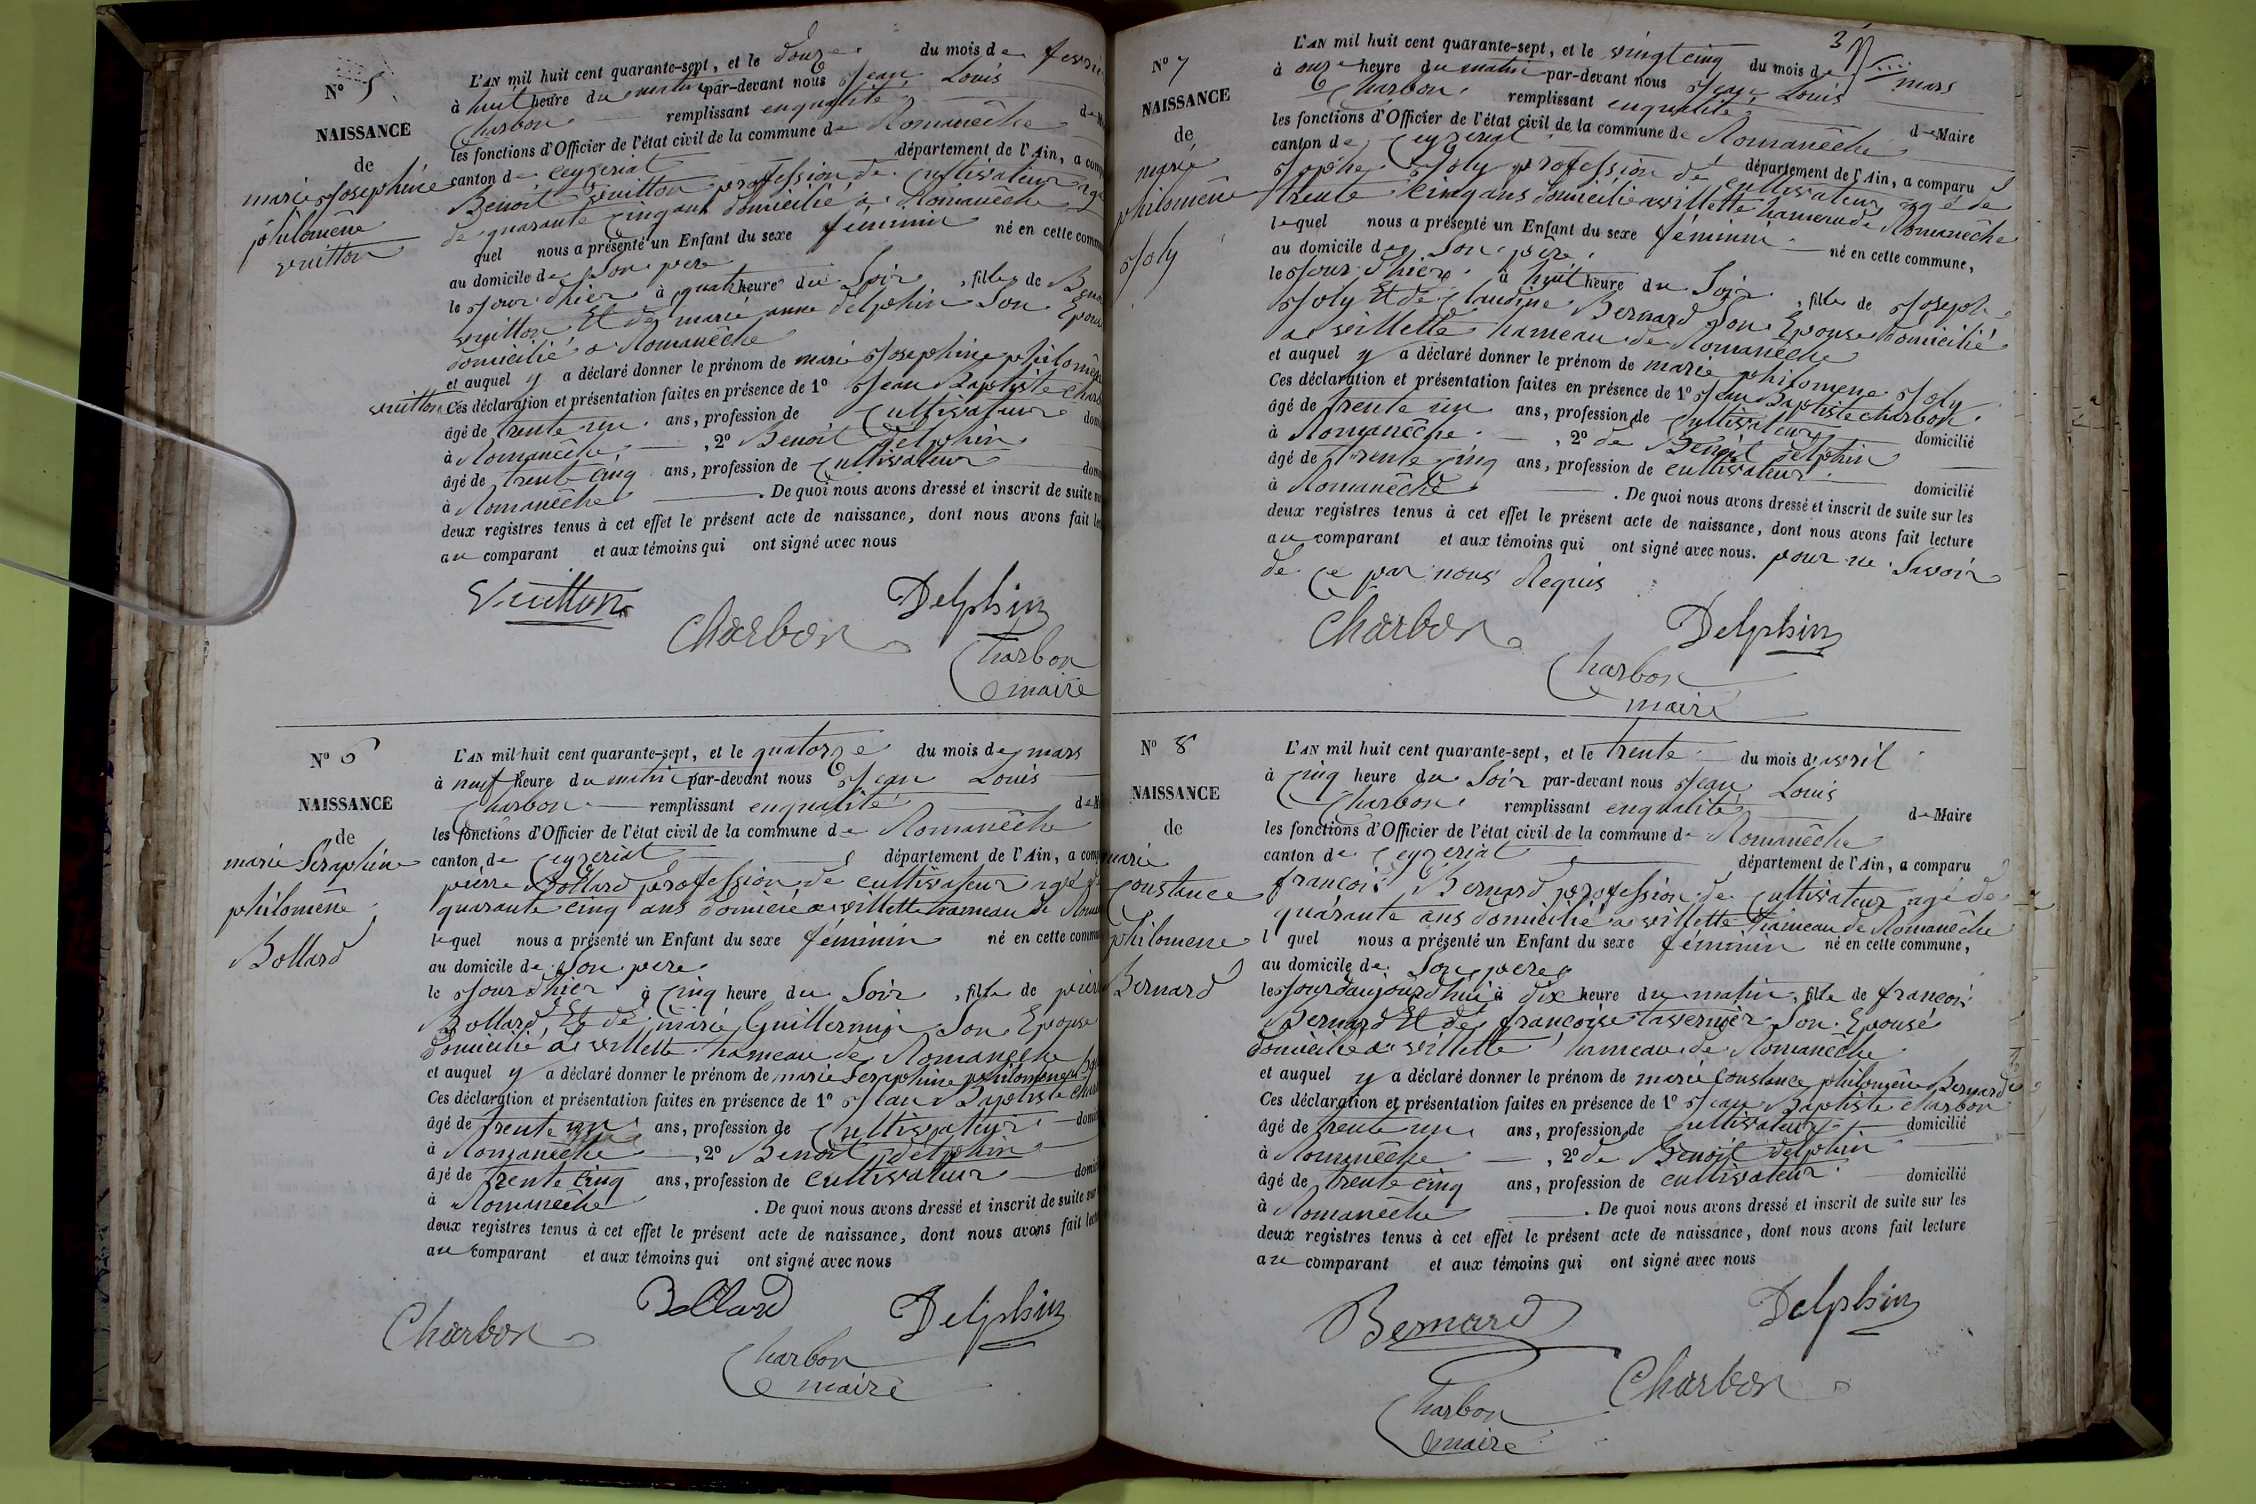 N° 5
NAISSANCE
de
marie Josephine
philomène
vuitton
L'AN mil huit cent quarante-sept, et le douze du mois de
à huit heure du matin par-devant nous Jean Louis
Charbon remplissant enqualité de
les fonctions d'Officier de l'état civil de la commune de Romanêche
canton de Ceyzeriat département de l'Ain, a
Benoit vuitton profession de Cultivateur age
de quarante Cinq ans domicilié a Romanêche
quel nous a présenté un Enfant du sexe féminin né en cette
au domicile de Son pere
le Jour d'hier à quatre heure du Soir, fille de
vuitton Et de marie anne delphin Son
domicilié a Romanêche
et auquel y a déclaré donner le prénom de marie Josephine philomène
vuitton Ces déclaration et présentation faites en présence de 1° Jean Baptiste
âgé de trente un ans, profession de Cultivateur
à Romanêche, 2° Benoit delphin
âgé de trente cinq ans, profession de Cultivateur
à Romanêche . De quoi nous avons dressé et inscrit de suite
deux registres tenus à cet effet le présent acte de naissance, dont nous avons fait
au comparant et aux témoins qui ont signé avec nous
Vuitton
Delphin
Charbon
Charbon
maire
N° 6
NAISSANCE
de
marie Seraphine
philomène
Bollard
L'AN mil huit cent quarante-sept, et le quatorze du mois de mars
à neuf heure du matin par-devant nous Jean Louis
Charbon remplissant enqualité de
les fonctions d'Officier de l'état civil de la commune de Romanêche
canton de Ceyzeriat département de l'Ain, a
pierre Bollard profession de cultivateur agé
quarante cinq ans domicié a villette hameau de
lequel nous a présenté un Enfant du sexe féminin né en cette
au domicile de Son pere
le Jour d'hier à Cinq heure du Soir, fille de
Bollard Et de marie Guillermin Son Epouse
domicilié a villette hameau de Romanêche
et auquel y a déclaré donner le prénom de marie Seraphine philomene
Ces déclaration et présentation faites en présence de 1° Jean Baptiste
âgé de trente un ans, profession de Cultivateur
à Romanêche, 2° Benoit delphin
âjé de trente cinq ans, profession de cultivateur
à Romanêche . De quoi nous avons dressé et inscrit de suite
deux registres tenus à cet effet le présent acte de naissance, dont nous avons fait
au comparant et aux témoins qui ont signé avec nous
Bollard
Delphin
Charbon
Charbon
maire
3
N° 7
NAISSANCE
de
marie
philomène
Joly
L'AN mil huit cent quarante-sept, et le vingt cinq du mois de mars
à onze heure du matin par-devant nous Jean Louis
Charbon remplissant enqualité de Maire
les fonctions d'Officier de l'état civil de la commune de Romanêche
canton de Ceyzeriat département de l'Ain, a comparu
Joly profession de cultivateur agé de
trente Cinq ans domicilié a villette hameau de Romanêche
lequel nous a présenté un Enfant du sexe féminin né en cette commune,
au domicile de Son pere
le Jour d'hier à huit heure du Soir, fille de Joseph
Joly Et de Claudine Bernard Son Epouse domicilié
a villette hameau de Romanêche
et auquel y a déclaré donner le prénom de marie philomene Joly
Ces déclaration et présentation faites en présence de 1° Jean Baptiste charbon
âgé de trente un ans, profession de Cultivateur domicilié
à Romanêche, 2° de Benoit Delphin
âgé de trente cinq ans, profession de cultivateur domicilié
à Romanêche . De quoi nous avons dressé et inscrit de suite sur les
deux registres tenus à cet effet le présent acte de naissance, dont nous avons fait lecture
au comparant et aux témoins qui ont signé avec nous. pour ne Savoir
de Ce par nous Requis
Charbon
Delphin
Charbon
maire
N° 8
NAISSANCE
de
marie
Constance
philomene
Bernard
L'AN mil huit cent quarante-sept, et le trente du mois d'avril
à Cinq heure du Soir par-devant nous Jean Louis
Charbon remplissant enqualité de Maire
les fonctions d'Officier de l'état civil de la commune de Romanêche
canton de Ceyzeriat département de l'Ain, a comparu
françois Bernard profession de Cultivateur agé de
quarante ans domicilié a villette hameau de Romanêche
l quel nous a présenté un Enfant du sexe féminin né en cette commune,
au domicile de Son pere
le Jour d'aujourd'hui à dix heure du matin, fille de françois
Bernard Et de françoise tavernier Son Epouse
domicilié a villette hameau de Romanêche
et auquel y a déclaré donner le prénom de marie Constance philomène Bernard
Ces déclaration et présentation faites en présence de 1° Jean Baptiste charbon
âgé de trente un ans, profession de Cultivateur domicilié
à Romanêche, 2° de Benoit delphin
âgé de trente cinq ans, profession de cultivateur domicilié
à Romanêche . De quoi nous avons dressé et inscrit de suite sur les
deux registres tenus à cet effet le présent acte de naissance, dont nous avons fait lecture
au comparant et aux témoins qui ont signé avec nous
Bernard
Delphin
Charbon
Charbon
maire